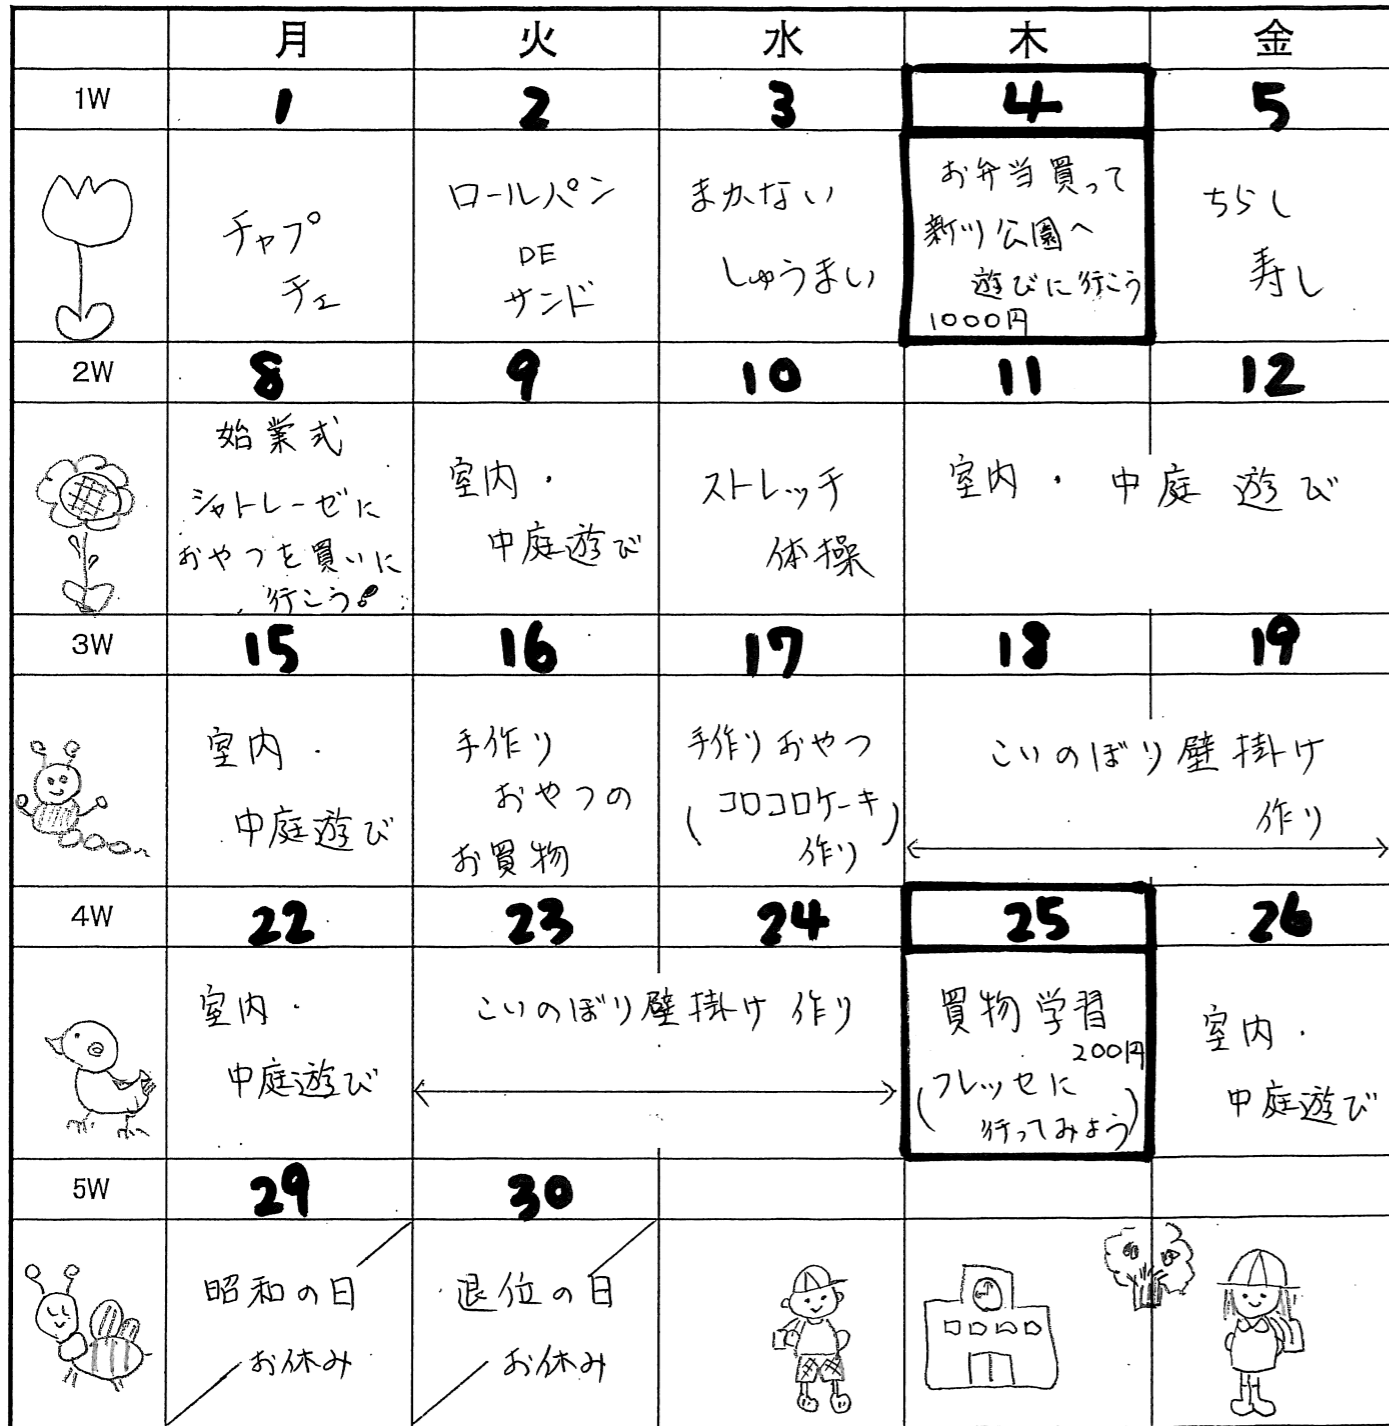 月 火 水 木 金
1W 1 2 3 4 5
チャプ
チェ
ロールパン
DE
サンド
まかない
しゅうまい
お弁当買って
新川公園へ
遊びに行こう
1000円
ちらし
寿し
2W 8 9 10 11 12
始業式
シャトレーゼに
おやつを買いに
行こう!
室内・
中庭遊び
ストレッチ
体操
室内・中庭遊び
3W 15 16 17 18 19
室内・
中庭遊び
手作り
おやつの
お買物
手作りおやつ
(コロコロケーキ
作り)
こいのぼり壁掛け
作り
4W 22 23 24 25 26
室内・
中庭遊び
こいのぼり壁掛け作り
買物学習
200円
(フレッセに
行ってみよう)
室内・
中庭遊び
5W 29 30
昭和の日
お休み
退位の日
お休み